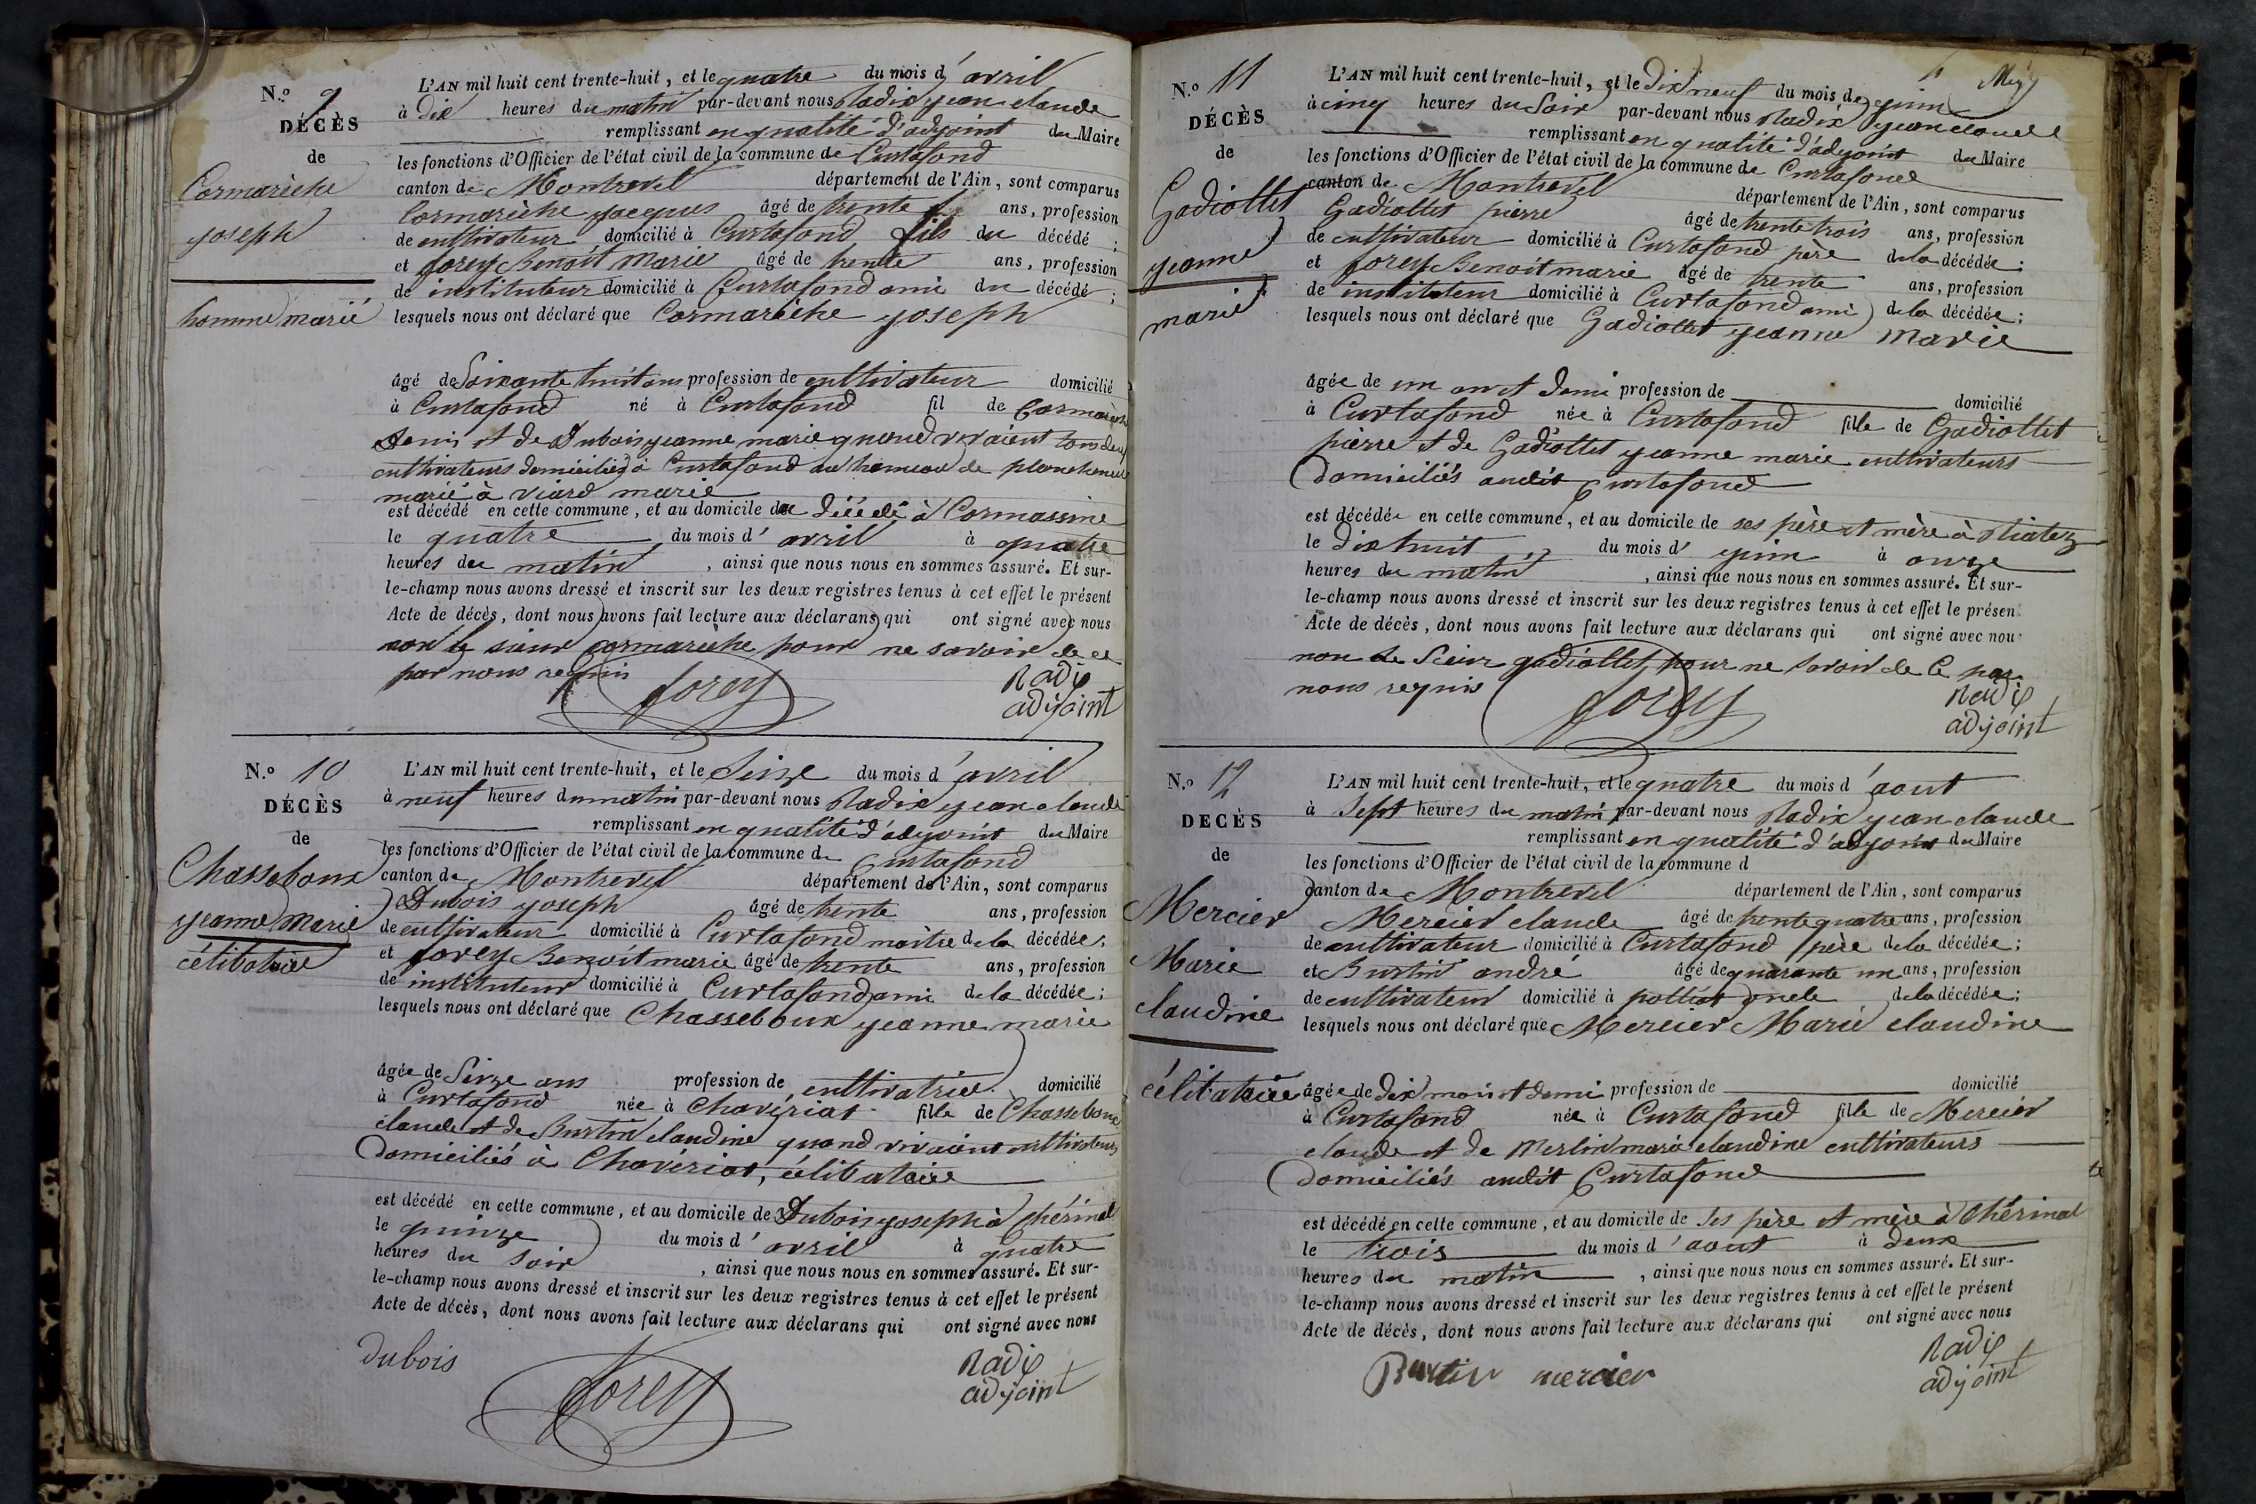 N.º 9
DÉCÈS
de
Cormarèche
joseph
homme marié
L'AN mil huit cent trente-huit, et le quatre du mois d'avril
à Dix heures du matin par-devant nous Radix jean claude
remplissant en qualité d'adjoint du Maire
les fonctions d'Officier de l'état civil de la commune de Curtafond
canton de Montrevel département de l'Ain, sont comparus
Cormarèche jacques âgé de trente ans, profession
de cultivateur domicilié à Curtafond fils du décédé ;
et forey Benoit Marie âgé de trente ans, profession
de instituteur domicilié à Curtafond ami du décédé ;
lesquels nous ont déclaré que Cormarèche joseph
âgé de Soixante huit ans profession de cultivateur domicilié
à Curtafond né à Curtafond fil de Cormarèche
Denis et de Dubois jeanne marie quand vivaient tous deux
cultivateurs domiciliés à Curtafond au hameau de
marié à Viard marie
est décédé en cette commune, et au domicile du décédé à Cormassine
le quatre du mois d'avril à quatre
heures du matin, ainsi que nous nous en sommes assuré. Et sur-
le-champ nous avons dressé et inscrit sur les deux registres tenus à cet effet le présent
Acte de décès, dont nous avons fait lecture aux déclarans qui ont signé avec nous
non le sieur Cormarèche pour ne savoir de ce
par nous requis
forey
Radix
adjoint
N.º 10
DÉCÈS
de
Chasseboux
jeanne Marie
célibataire
L'AN mil huit cent trente-huit, et le Seize du mois d'avril
à neuf heures du matin par-devant nous Radix jean claude
remplissant en qualité d'adjoint du Maire
les fonctions d'Officier de l'état civil de la commune de Curtafond
canton de Montrevel département de l'Ain, sont comparus
Dubois joseph âgé de trente ans, profession
de cultivateur domicilié à Curtafond maître de la décédée ;
et forey Benoit marie âgé de trente ans, profession
de instituteur domicilié à Curtafond ami de la décédée ;
lesquels nous ont déclaré que Chasseboux jeanne marie
âgée de Seize ans profession de cultivatrice domicilié
à Curtafond née à Chavériat fille de Chasseboux
claude et de Burtin claudine quand vivaient cultivateurs
domiciliés à Chavériat, célibataire
est décédé en cette commune, et au domicile de Dubois joseph à Chérinal
le quinze du mois d'avril à quatre
heures du soir, ainsi que nous nous en sommes assuré. Et sur-
le-champ nous avons dressé et inscrit sur les deux registres tenus à cet effet le présent
Acte de décès, dont nous avons fait lecture aux déclarans qui ont signé avec nous
dubois
forey
Radix
adjoint
N.º 11
DÉCÈS
de
Gadiollet
jeanne
marie
L'AN mil huit cent trente-huit, et le Dix neuf du mois de juin
à cinq heures du Soir par-devant nous Radix jean claude
remplissant en qualité d'adjoint du Maire
les fonctions d'Officier de l'état civil de la commune de Curtafond
canton de Montrevel département de l'Ain, sont comparus
Gadiollet pierre âgé de trente trois ans, profession
de cultivateur domicilié à Curtafond père de la décédée ;
et forey Benoit marie âgé de trente ans, profession
de instituteur domicilié à Curtafond ami de la décédée ;
lesquels nous ont déclaré que Gadiollet jeanne Marie
âgée de un an et demi profession de domicilié
à Curtafond née à Curtafond fille de Gadiollet
pierre et de Gadiollet jeanne marie cultivateurs
domiciliés audit Curtafond
est décédée en cette commune, et au domicile de ses père et mère à
le dix huit du mois d' juin à onze
heures du matin, ainsi que nous nous en sommes assuré. Et sur-
le-champ nous avons dressé et inscrit sur les deux registres tenus à cet effet le présen
Acte de décès, dont nous avons fait lecture aux déclarans qui ont signé avec nou
non le Sieur gadiollet, pour ne savoir de ce par
nous requis
forey
Radix
adjoint
N.º 12
DÉCÈS
de
Mercier
Marie
claudine
célibataire
L'AN mil huit cent trente-huit, et le quatre du mois d'aout
à Sept heures du matin par-devant nous Radix jean claude
remplissant en qualité d'adjoint du Maire
les fonctions d'Officier de l'état civil de la commune d
canton de Montrevel département de l'Ain, sont comparus
Mercier claude âgé de trente quatre ans, profession
de cultivateur domicilié à Curtafond père de la décédée ;
et Burtin andré âgé de quarante un ans, profession
de cultivateur domicilié à polliat oncle de la décédée ;
lesquels nous ont déclaré que Mercier Marie claudine
âgée de dix mois et demi profession de domicilié
à Curtafond née à Curtafond fille de Mercier
claude et de Merlin marie claudine cultivateurs
domiciliés audit Curtafond
est décédé en cette commune, et au domicile de ses père et mère à Chérinal
le trois du mois d'aout à deux
heures du matin, ainsi que nous nous en sommes assuré. Et sur-
le-champ nous avons dressé et inscrit sur les deux registres tenus à cet effet le présent
Acte de décès, dont nous avons fait lecture aux déclarans qui ont signé avec nous
Burtin mercier
Radix
adjoint